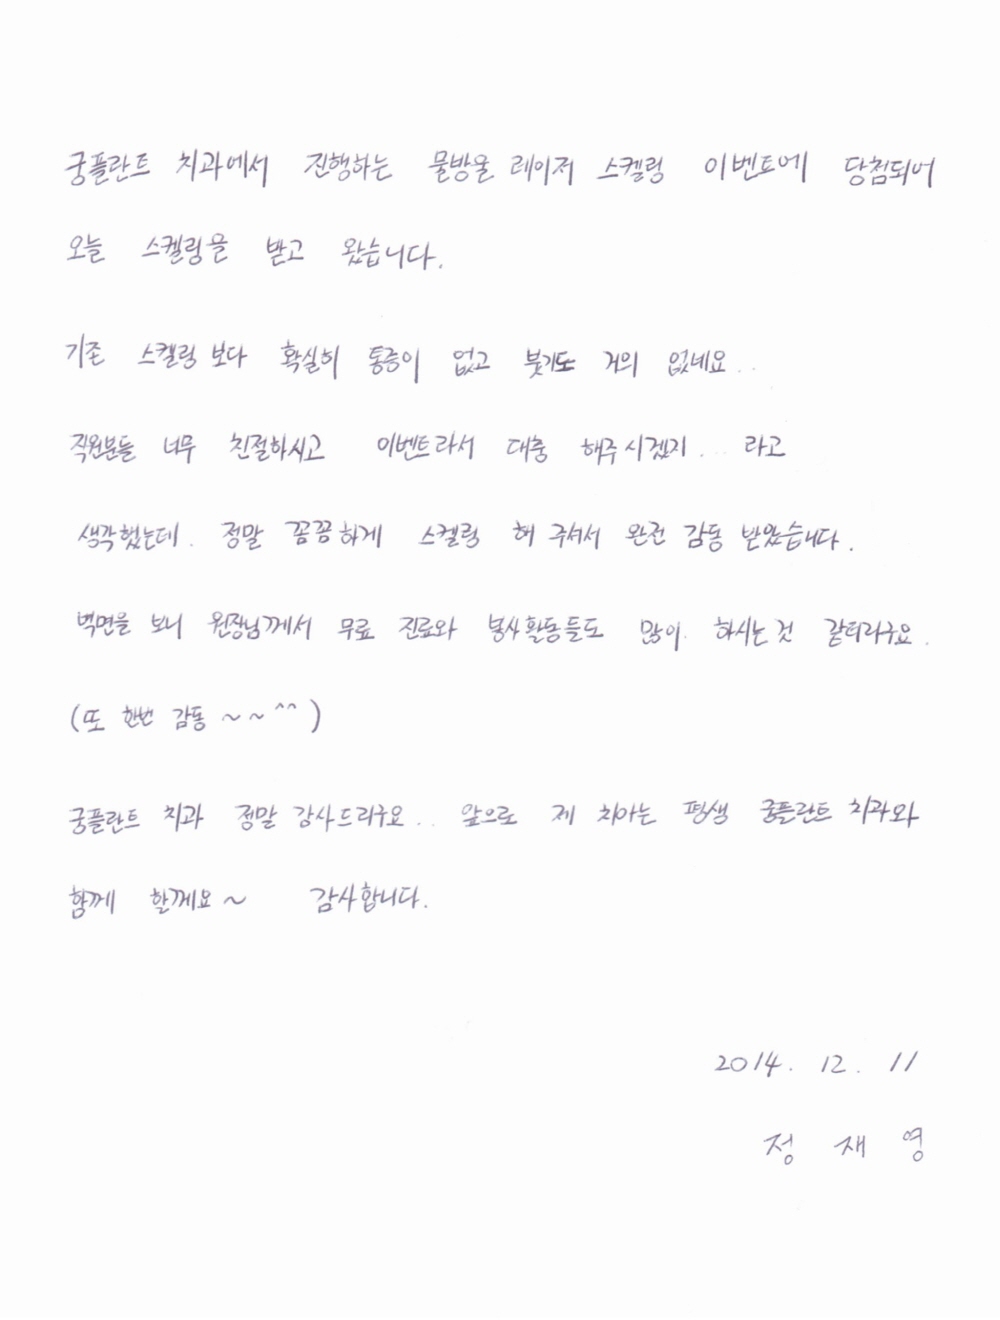 궁플란트 치과에서 진행하는 물방울 레이저 스켈링 이벤트에 당첨되어
오늘 스켈링을 받고 왔습니다.
기존 스켈링 보다 확실히 통증이 없고 붓기도 거의 없네요..
직원분들 너무 친절하시고 이벤트라서 대충 해주시겠지... 라고
생각했는데. 정말 꼼꼼하게 스켈링 해 주셔서 완전 감동 받았습니다.
벽면을 보니 원장님께서 무료 진료와 봉사활동들도 많이 하시는 것 같더라구요.
(또 한번 감동 ~ ~ ^^)
궁플란트 치과 정말 감사드리구요.. 앞으로 제 치아는 평생 궁플란트 치과와
함께 할께요~ 감사합니다.
2014. 12. 11
정 재 영